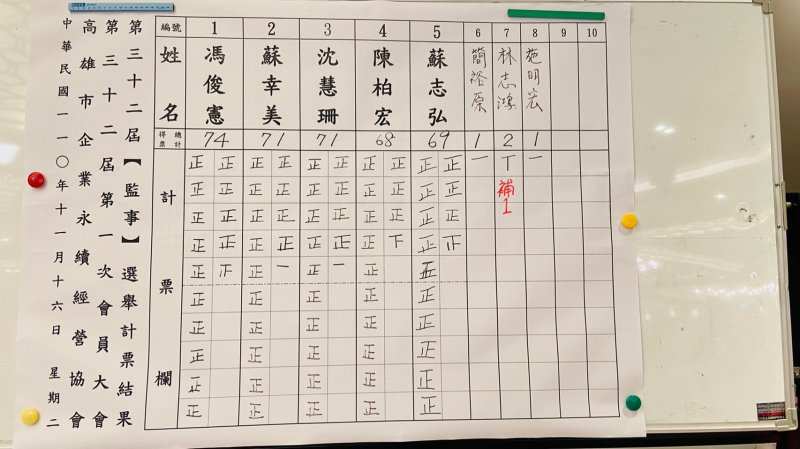 高雄市企業永續經營協會
第三十二屆第一次會員大會
第三十二屆【監事】選舉計票結果
中華民國一一〇年十一月十六日 星期二
編號 1 2 3 4 5 6 7 8 9 10
姓名 馮俊憲 蘇幸美 沈慧珊 陳柏宏 蘇志弘 簡裕原 林志鴻 施明宏
得票總計 74 71 71 68 69 1 2 1
計票欄
正 正 正 正 正 正 正 正 正 正 一 丅 一
正 正 正 正 正 正 正 正 正 正 補1
正 正 正 正 正 正 正 正 正 正
正 正 正 正 正 正 正 下 正 正
正 正 一 正 一 正 正
正 正 正 正 正
正 正 正 正 正
正 正 正 正 正
正 正 正 正 正
正 正 正 正 正